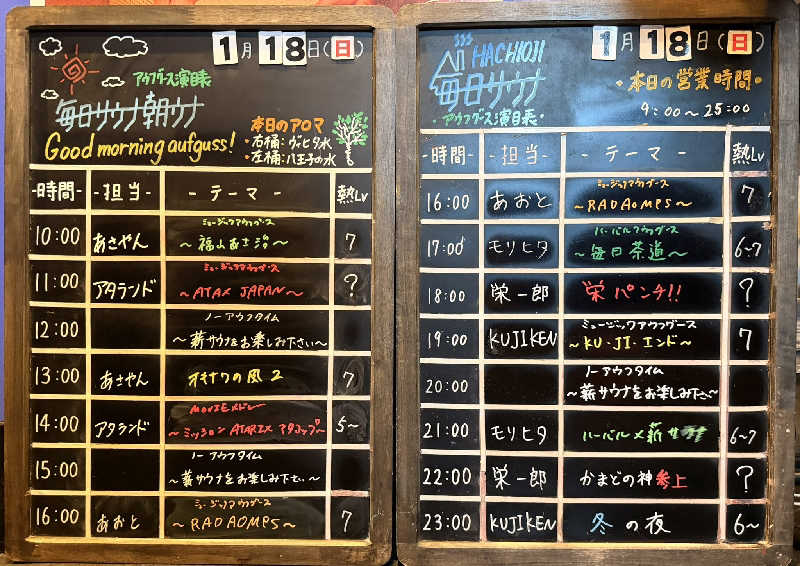 1月18日(日)
アウフグース演目表
毎日サウナ朝ウナ
Good morning aufguss!
本日のアロマ
・右桶:ヴィヒタ水
・左桶:八王子の水
-時間- -担当- -テーマ- 熱Lv
10:00 あさやん ミュージックアウフグース 7
～福山あさ治～
11:00 アタランド ミュージックアウフグース ?
～ATAX JAPAN～
12:00 ノーアウフタイム
～薪サウナをお楽しみ下さい～
13:00 あさやん オキナワの風2 7
14:00 アタランド MOVIEメドレー 5～
～ミッションATARIX アタロップ～
15:00 ノーアウフタイム
～薪サウナをお楽しみ下さい～
16:00 あおと ミュージックアウフグース 7
～RADAOMPS～
1月18日(日)
HACHIOJI
毎日サウナ
・アウフグース演目表・
・本日の営業時間・
9:00～25:00
-時間- -担当- -テーマ- 熱Lv
16:00 あおと ミュージックアウフグース 7
～RADAOMPS～
17:00 モリヒタ ハーバルアウフグース 6~7
～毎日茶道～
18:00 栄一郎 栄パンチ!! ?
19:00 KUJIKEN ミュージックアウフグース 7
～KU・JI・エンド～
20:00 ノーアウフタイム
～薪サウナをお楽しみ下さい～
21:00 モリヒタ ハーバル×薪サウナ 6~7
22:00 栄一郎 かまどの神参上 ?
23:00 KUJIKEN 冬の夜 6～